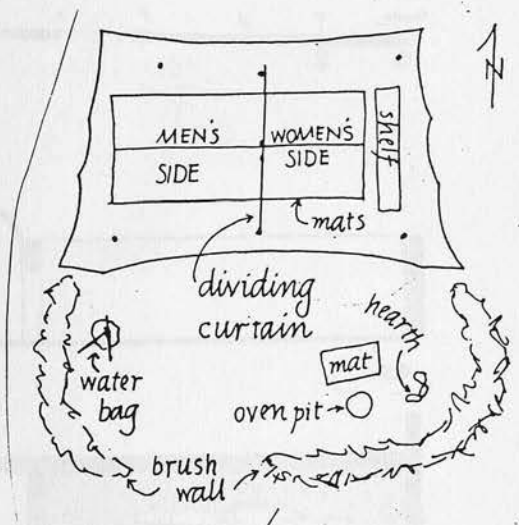 N
MEN'S
SIDE
WOMEN'S
SIDE
shelf
mats
dividing
curtain
hearth
water
bag
mat
oven pit
brush
wall